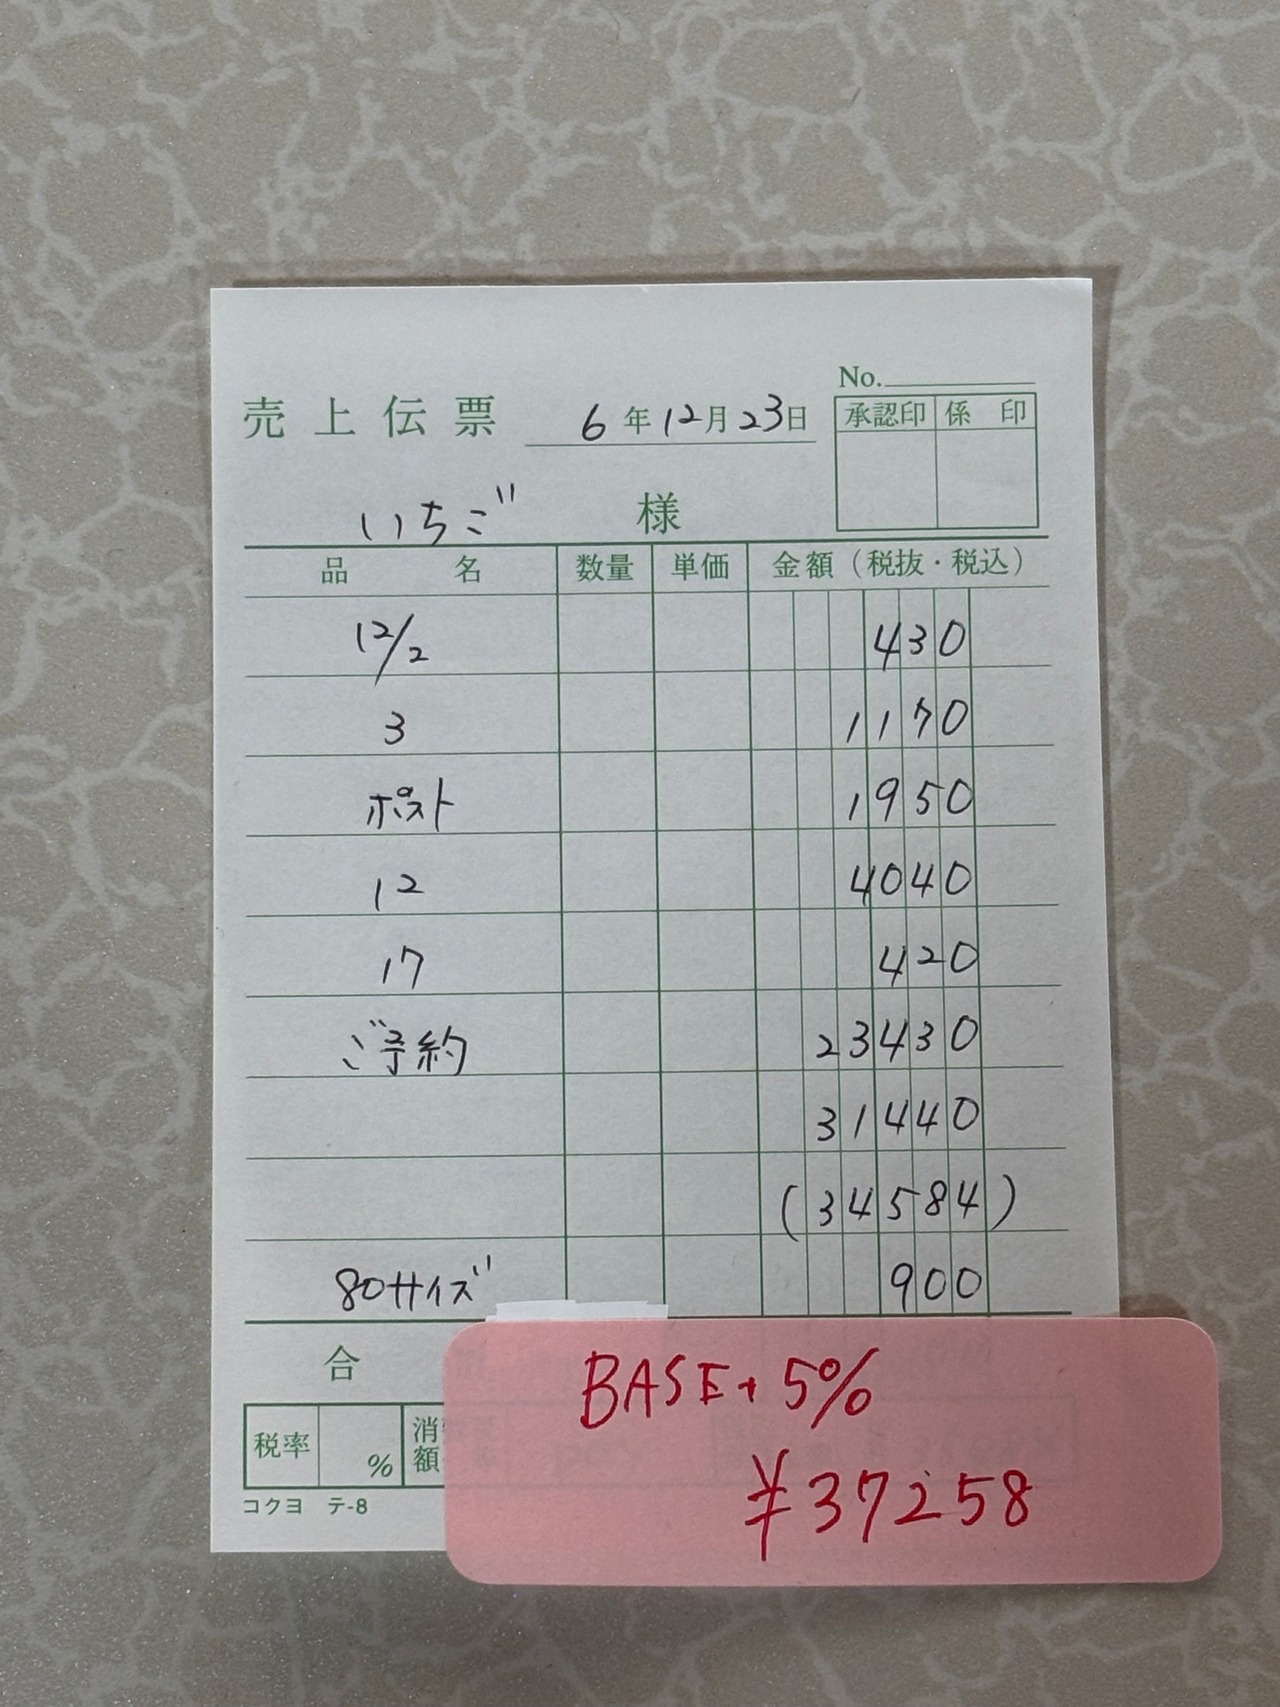 No.
売上伝票 6年12月23日
承認印 係印
いちご 様
品名 数量 単価 金額(税抜・税込)
12/2 430
3 1170
ポスト 1950
12 4040
17 420
ご予約 23430
31440
(34584)
80サイズ 900
合
BASE+5%
税率 % 消
額
¥37258
コクヨ テ-8